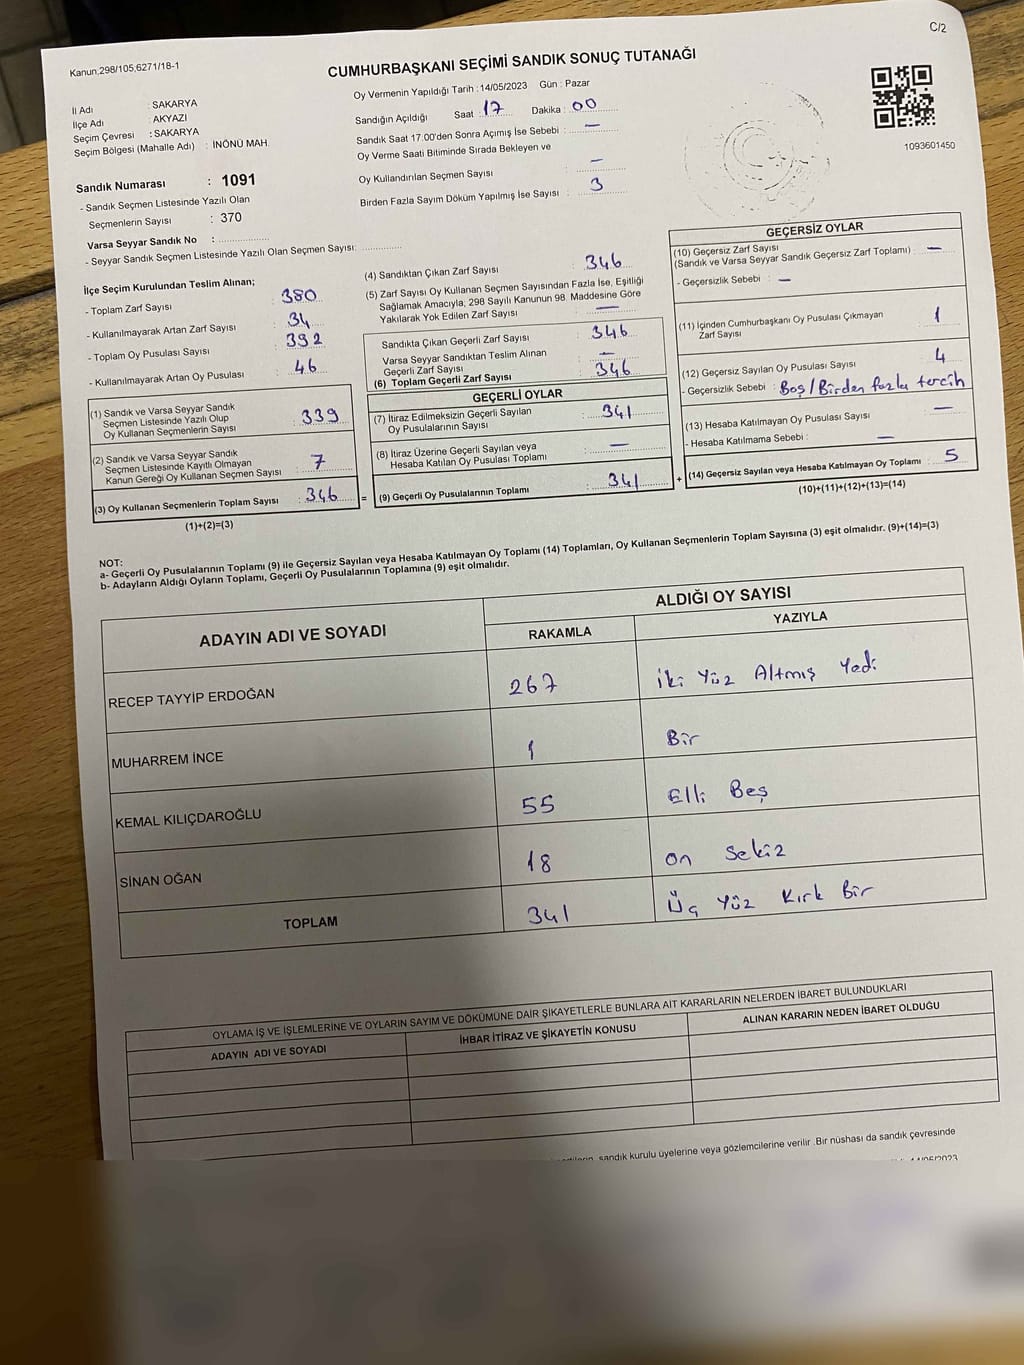 C/2
Kanun,298/105,6271/18-1
CUMHURBAŞKANI SEÇİMİ SANDIK SONUÇ TUTANAĞI
İl Adı : SAKARYA
İlçe Adı : AKYAZI
Seçim Çevresi : SAKARYA
Seçim Bölgesi (Mahalle Adı) : İNÖNÜ MAH.
Sandık Numarası : 1091
- Sandık Seçmen Listesinde Yazılı Olan
Seçmenlerin Sayısı : 370
Varsa Seyyar Sandık No :
- Seyyar Sandık Seçmen Listesinde Yazılı Olan Seçmen Sayısı:
Oy Vermenin Yapıldığı Tarih : 14/05/2023 Gün : Pazar
Sandığın Açıldığı Saat : 17 Dakika : 00
Sandık Saat 17:00'den Sonra Açımış İse Sebebi : —
Oy Verme Saati Bitiminde Sırada Bekleyen ve
Oy Kullandırılan Seçmen Sayısı —
Birden Fazla Sayım Döküm Yapılmış İse Sayısı : 3
1093601450
İlçe Seçim Kurulundan Teslim Alınan;
- Toplam Zarf Sayısı : 380
- Kullanılmayarak Artan Zarf Sayısı : 34
- Toplam Oy Pusulası Sayısı : 392
- Kullanılmayarak Artan Oy Pusulası : 46
(1) Sandık ve Varsa Seyyar Sandık
Seçmen Listesinde Yazılı Olup
Oy Kullanan Seçmenlerin Sayısı : 339
(2) Sandık ve Varsa Seyyar Sandık
Seçmen Listesinde Kayıtlı Olmayan
Kanun Gereği Oy Kullanan Seçmen Sayısı : 7
(3) Oy Kullanan Seçmenlerin Toplam Sayısı : 346
(1)+(2)=(3)
(4) Sandıktan Çıkan Zarf Sayısı : 346
(5) Zarf Sayısı Oy Kullanan Seçmen Sayısından Fazla İse, Eşitliği
Sağlamak Amacıyla, 298 Sayılı Kanunun 98. Maddesine Göre
Yakılarak Yok Edilen Zarf Sayısı : —
Sandıkta Çıkan Geçerli Zarf Sayısı : 346
Varsa Seyyar Sandıktan Teslim Alınan
Geçerli Zarf Sayısı : —
(6) Toplam Geçerli Zarf Sayısı : 346
GEÇERLİ OYLAR
(7) İtiraz Edilmeksizin Geçerli Sayılan
Oy Pusulalarının Sayısı : 341
(8) İtiraz Üzerine Geçerli Sayılan veya
Hesaba Katılan Oy Pusulası Toplamı : —
= (9) Geçerli Oy Pusulalarının Toplamı : 341 +
GEÇERSİZ OYLAR
(10) Geçersiz Zarf Sayısı
(Sandık ve Varsa Seyyar Sandık Geçersiz Zarf Toplamı) : —
- Geçersizlik Sebebi : —
(11) İçinden Cumhurbaşkanı Oy Pusulası Çıkmayan
Zarf Sayısı 1
(12) Geçersiz Sayılan Oy Pusulası Sayısı 4
- Geçersizlik Sebebi : Boş / Birden fazla tercih
(13) Hesaba Katılmayan Oy Pusulası Sayısı —
- Hesaba Katılmama Sebebi : —
(14) Geçersiz Sayılan veya Hesaba Katılmayan Oy Toplamı : 5
(10)+(11)+(12)+(13)=(14)
NOT:
a- Geçerli Oy Pusulalarının Toplamı (9) ile Geçersiz Sayılan veya Hesaba Katılmayan Oy Toplamı (14) Toplamları, Oy Kullanan Seçmenlerin Toplam Sayısına (3) eşit olmalıdır. (9)+(14)=(3)
b- Adayların Aldığı Oyların Toplamı, Geçerli Oy Pusulalarının Toplamına (9) eşit olmalıdır.
ADAYIN ADI VE SOYADI
ALDIĞI OY SAYISI
RAKAMLA YAZIYLA
RECEP TAYYİP ERDOĞAN 267 İki Yüz Altmış Yedi
MUHARREM İNCE 1 Bir
KEMAL KILIÇDAROĞLU 55 Elli Beş
SİNAN OĞAN 18 On Sekiz
TOPLAM 341 Üç Yüz Kırk Bir
OYLAMA İŞ VE İŞLEMLERİNE VE OYLARIN SAYIM VE DÖKÜMÜNE DAİR ŞİKAYETLERLE BUNLARA AİT KARARLARIN NELERDEN İBARET BULUNDUKLARI
ADAYIN ADI VE SOYADI İHBAR İTİRAZ VE ŞİKAYETİN KONUSU ALINAN KARARIN NEDEN İBARET OLDUĞU
sandık kurulu üyelerine veya gözlemcilerine verilir .Bir nüshası da sandık çevresinde